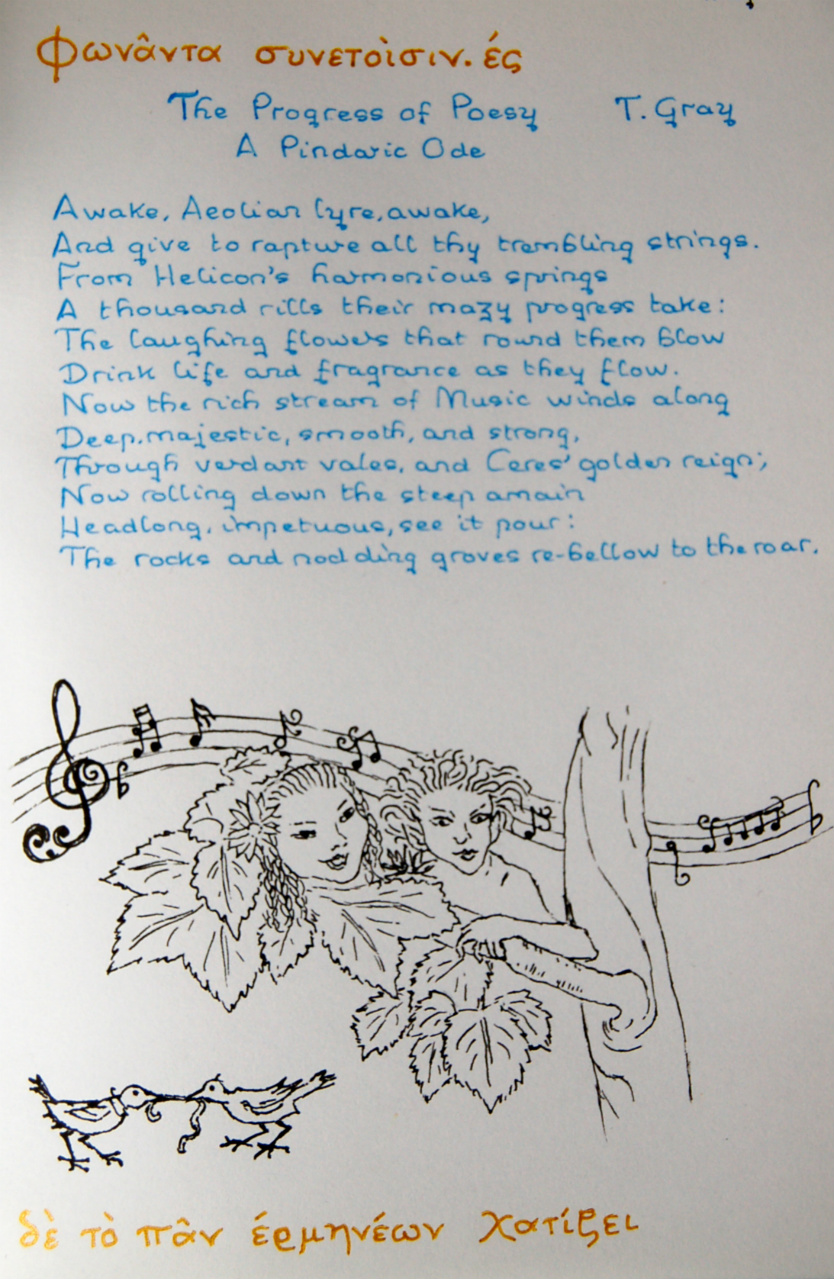 φωνᾶντα συνετοὶσιν. ές
The Progress of Poesy T. Gray
A Pindaric Ode
Awake, Aeolian lyre, awake,
And give to rapture all thy trembling strings.
From Helicon's harmonious springs
A thousand rills their mazy progress take:
The laughing flowers that round them blow
Drink life and fragrance as they flow.
Now the rich stream of Music winds along
Deep, majestic, smooth, and strong,
Through verdant vales, and Ceres' golden reign;
Now rolling down the steep amain
Headlong, impetuous, see it pour:
The rocks and nodding groves re-bellow to the roar.
δὲ τὸ πᾶν έρμηνέων χατίξει